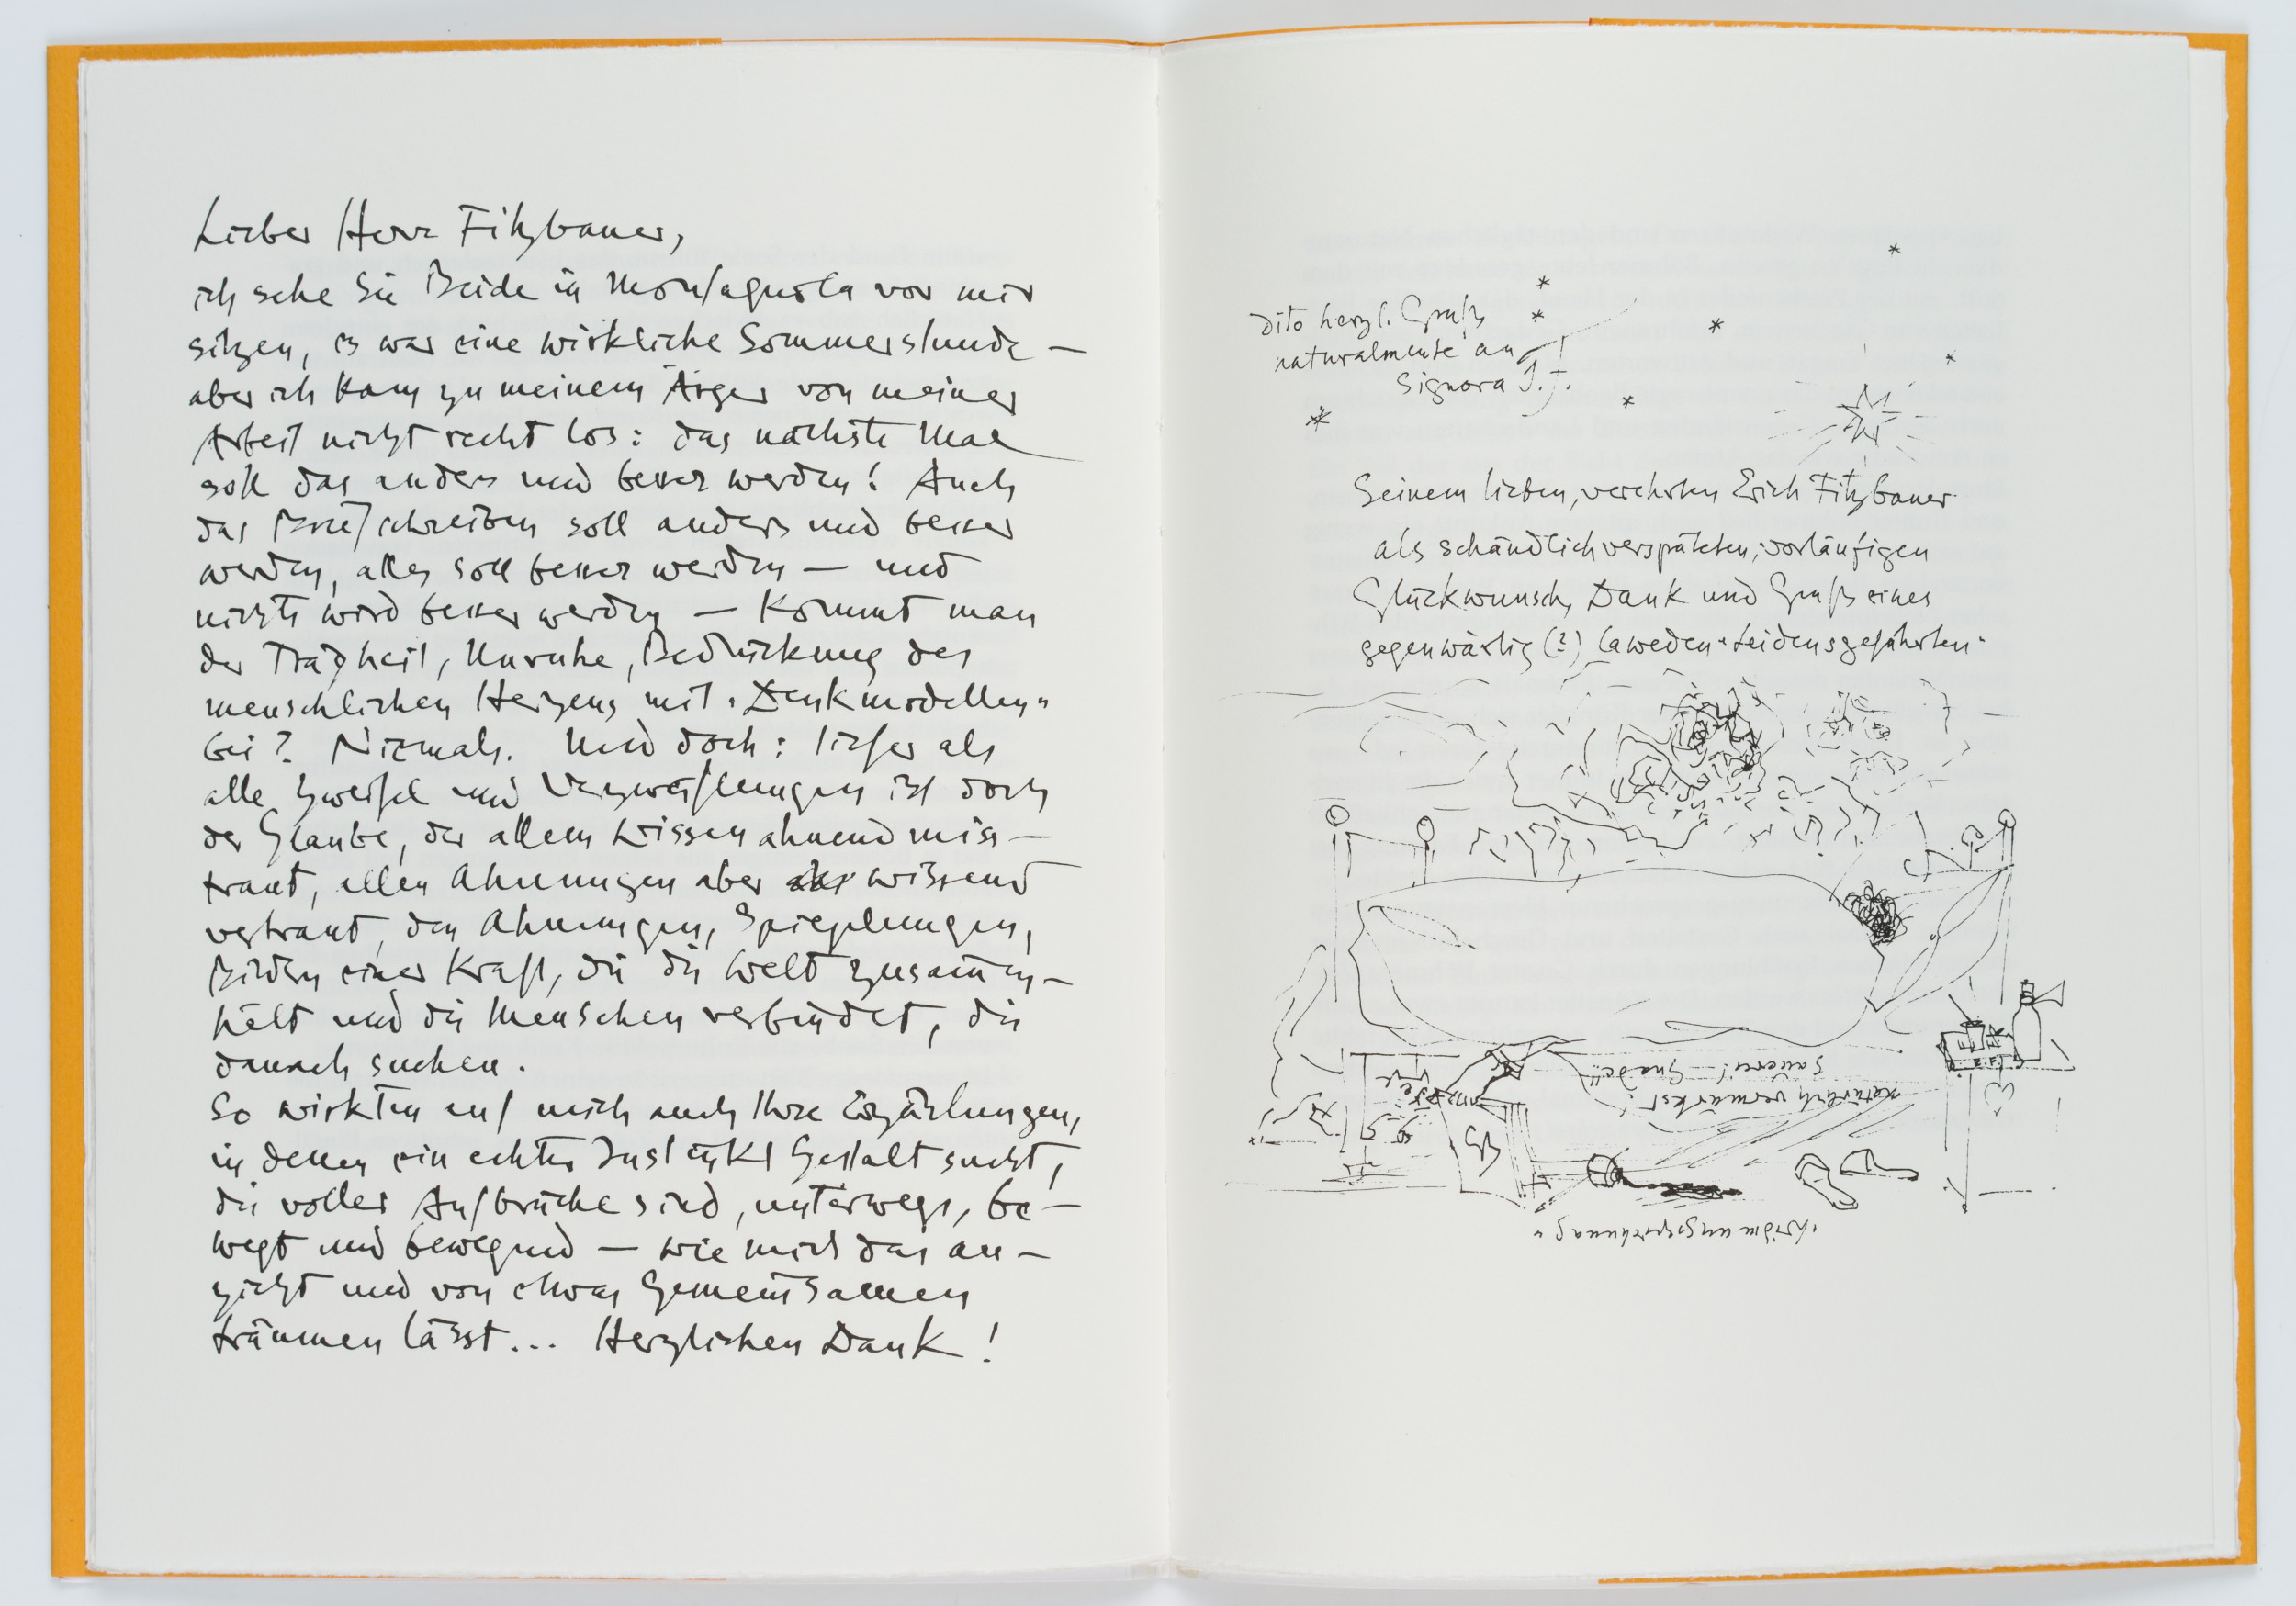 Lieber Herr Fitzbauer,
ich sehe Sie Beide in Montagnola vor mir
sitzen, es war eine wirkliche Sommerstunde –
aber ich kam zu meinem Ärger von meiner
Arbeit nicht recht los: das nächste Mal
soll das anders und besser werden! Auch
das Briefschreiben soll anders und besser
werden, alles soll besser werden – und
nichts wird besser werden – Kommt man
der Trägheit, Unruhe, Bedrückung des
menschlichen Herzens mit "Denkmodellen"
bei? Niemals. Und doch: tiefer als
alle Zweifel und Verzweiflungen ist doch
der Glaube, der allem Wissen ahnend miss–
traut, allen Ahnungen aber wissend
vertraut, den Ahnungen, Spiegelungen,
Bildern einer Kraft, die die Welt zusammen–
hält und die Menschen verbindet, die
danach suchen.
So wirkten auf mich auch Ihre Erzählungen,
in denen ein echter Instinkt Gestalt sucht,
die voller Aufbrüche sind, unterwegs, be–
wegt und bewegend – wie mich das an–
zieht und von etwas Gemeinsamen
träumen lässt... Herzlichen Dank!
dito herzl. Gruß
naturalmente an
Signora I. F.
Seinem lieben, verehrten Erich Fitzbauer
als schändlich verspäteten, vorläufigen
Glückwunsch, Dank und Gruß eines
gegenwärtig (?) Leidensgefährten
Sauerei! – Gnade!!
natürlich vermurkst!
"Widmungszeichnung"